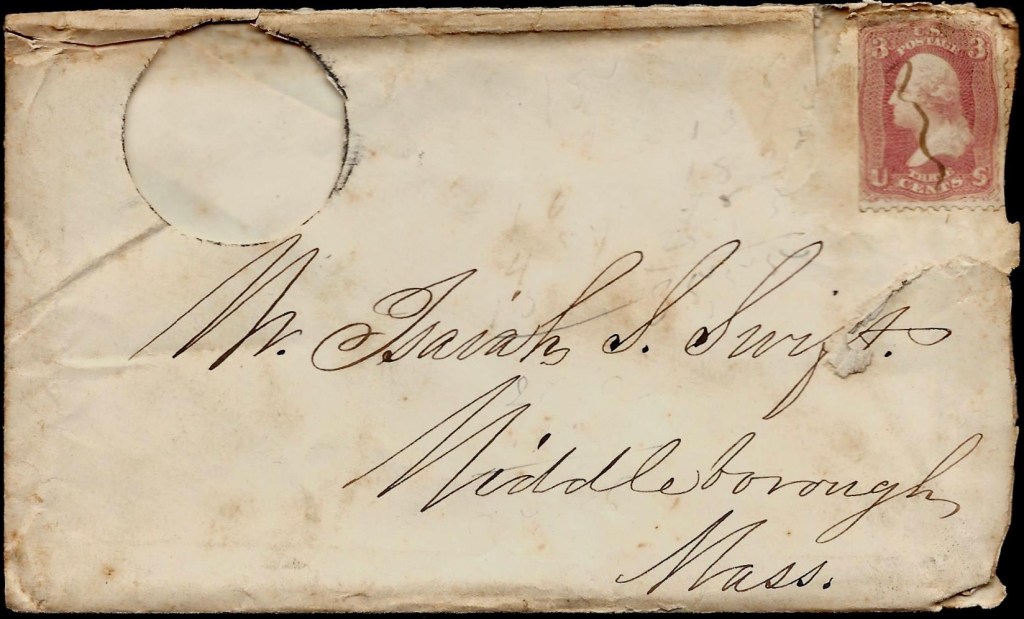 3 U.S. 3
POSTAGE
THREE
U CENTS S
Mr. Isaiah S. Swift.
Middleborough
Mass.